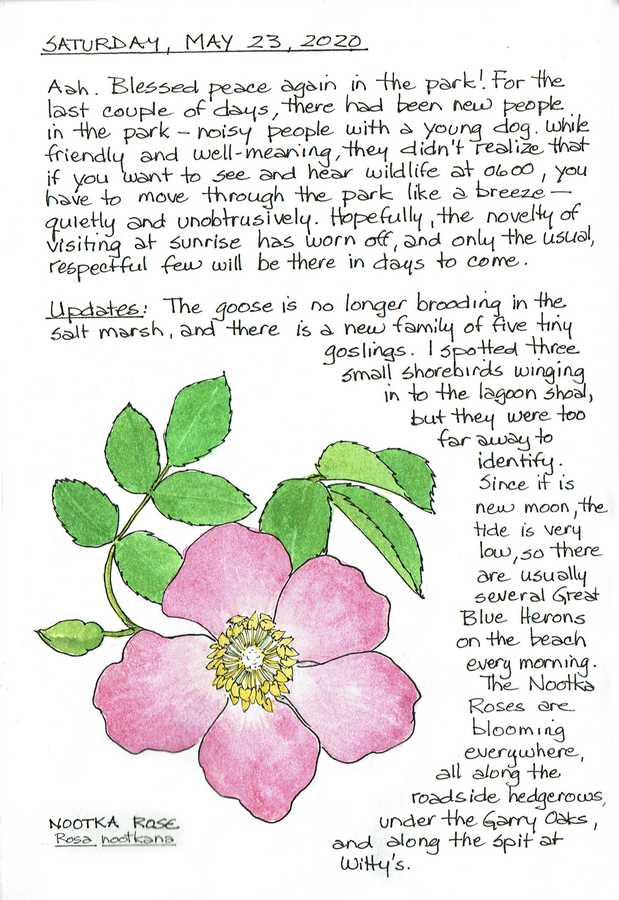 SATURDAY, MAY 23, 2020
Aah. Blessed peace again in the park! For the
last couple of days, there had been new people
in the park – noisy people with a young dog. While
friendly and well-meaning, they didn't realize that
if you want to see and hear wildlife at 0600, you
have to move through the park like a breeze –
quietly and unobtrusively. Hopefully, the novelty of
visiting at sunrise has worn off, and only the usual,
respectful few will be there in days to come.
Updates: The goose is no longer brooding in the
salt marsh, and there is a new family of five tiny
goslings. I spotted three
small shorebirds winging
in to the lagoon shoal,
but they were too
far away to
identify.
Since it is
new moon, the
tide is very
low, so there
are usually
several Great
Blue Herons
on the beach
every morning.
The Nootka
Roses are
blooming
everywhere,
all along the
roadside hedgerows,
under the Garry Oaks,
and along the spit at
Witty's.
NOOTKA ROSE
Rosa nootkana